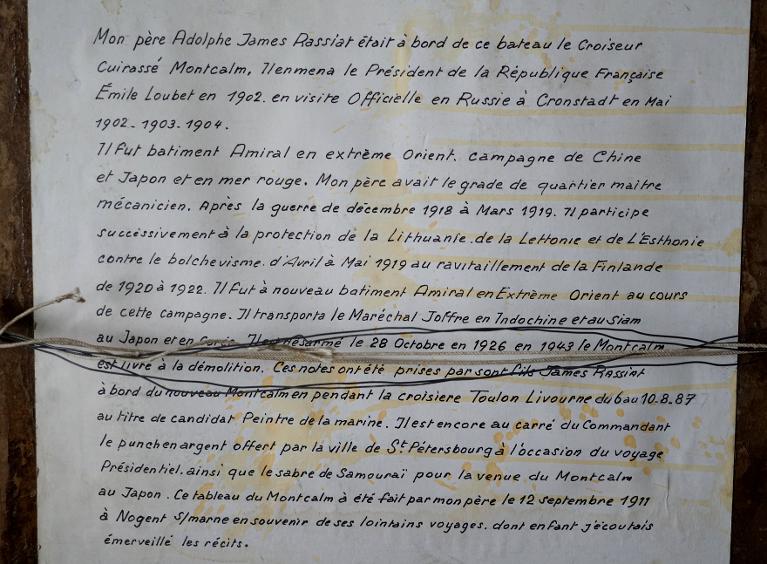 Mon père Adolphe James Rassiat était à bord de ce bateau le Croiseur
Cuirassé Montcalm, Il enmena le Président de la République Française
Émile Loubet en 1902. en visite Officielle en Russie à Cronstadt en Mai
1902-1903-1904.
Il fut batiment Amiral en extrème Orient. campagne de Chine
et Japon et en mer rouge. Mon père avait le grade de quartier maitre
mécanicien. Après la guerre de décembre 1918 à Mars 1919. Il participe
successivement à la protection de la Lithuanie. de la Lettonie et de L'Esthonie
contre le bolchevisme. d'Avril à Mai 1919 au ravitaillement de la Finlande
de 1920 à 1922. Il fut à nouveau batiment Amiral en Extrème Orient au cours
de cette campagne. Il transporta le Maréchal Joffre en Indochine et au Siam
au Japon et en Corée. Il est désarmé le 28 Octobre en 1926 en 1943 le Montcalm
est livré à la démolition. Ces notes ont été prises par sont fils James RASSIAT
à bord du nouveau Montcalm en pendant la croisiere Toulon Livourne du 6 au 10.8.87
au titre de candidat Peintre de la marine. Il est encore au carré du Commandant
le punch en argent offert par la ville de St Pétersbourg à l'occasion du voyage
Présidentiel. ainsi que le sabre de Samouraï pour la venue du Montcalm
au Japon. Ce tableau du Montcalm à été fait par mon père le 12 septembre 1911
à Nogent S/marne en souvenir de ses lointains voyages. dont enfant j'écoutais
émerveillé les récits.